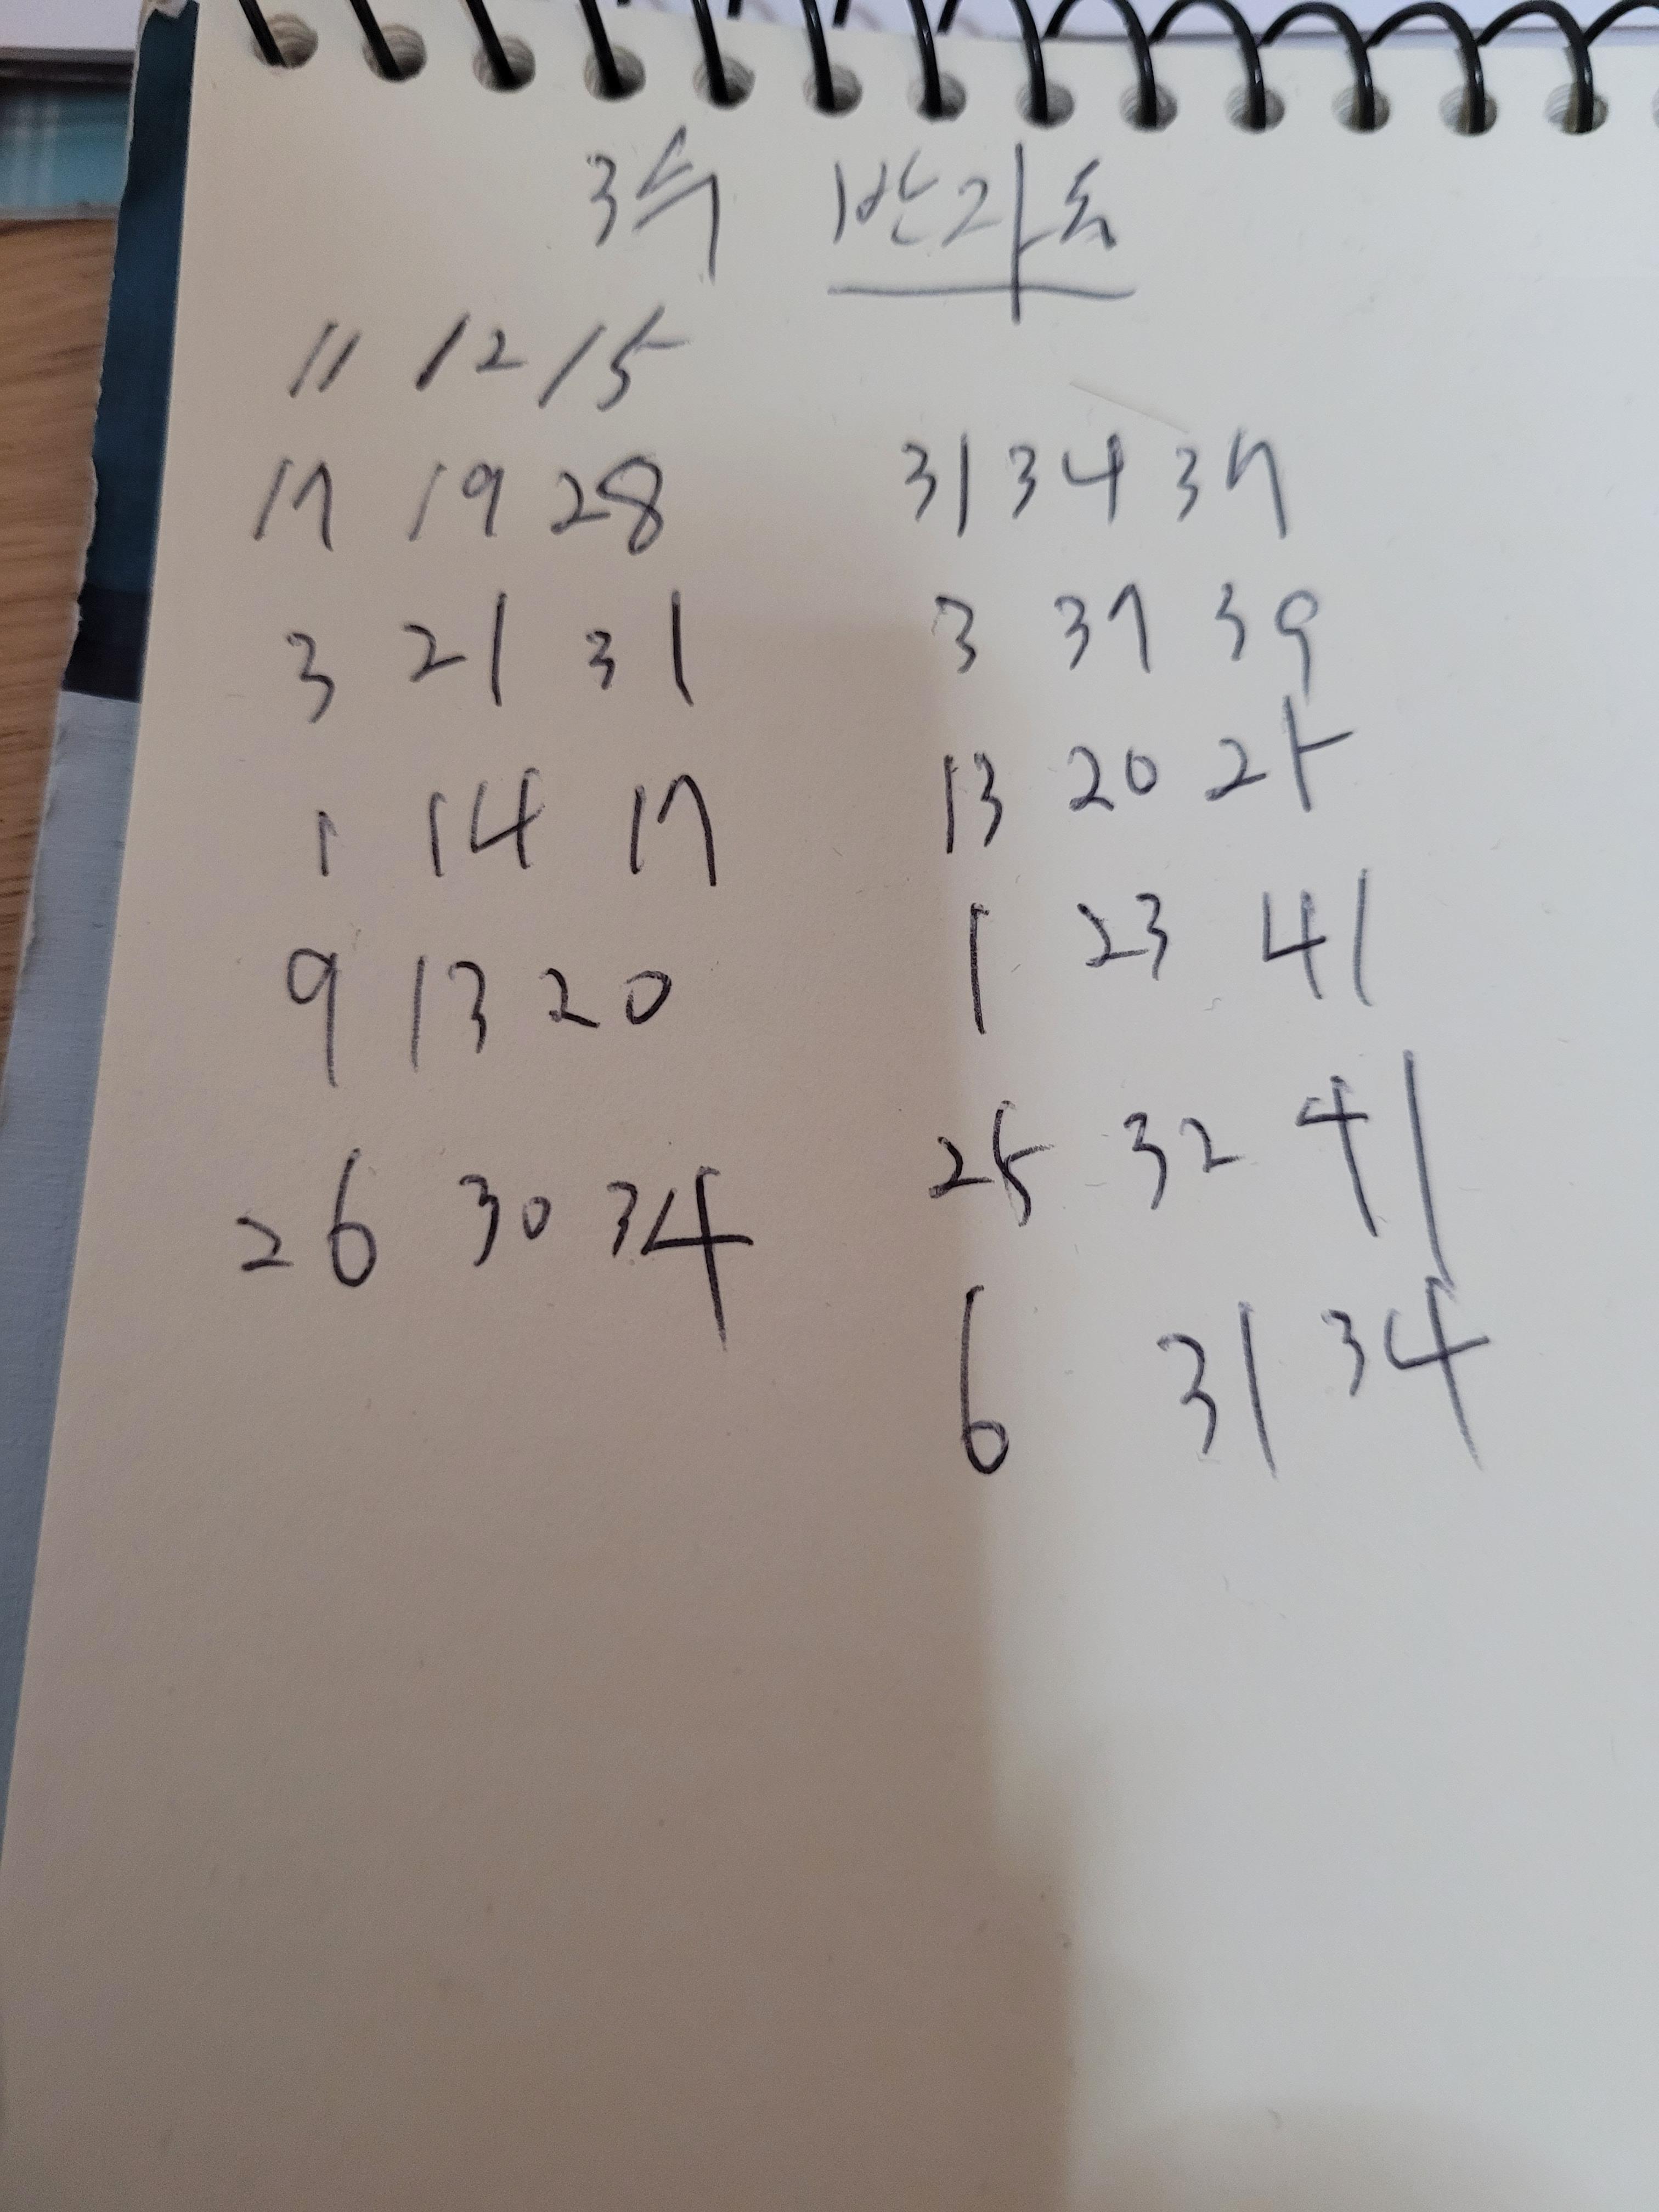 3수 반자동
11 12 15
17 19 28
3 21 31
1 14 17
9 13 20
26 30 34
31 34 37
3 37 39
13 20 25
1 23 41
25 32 41
6 31 34